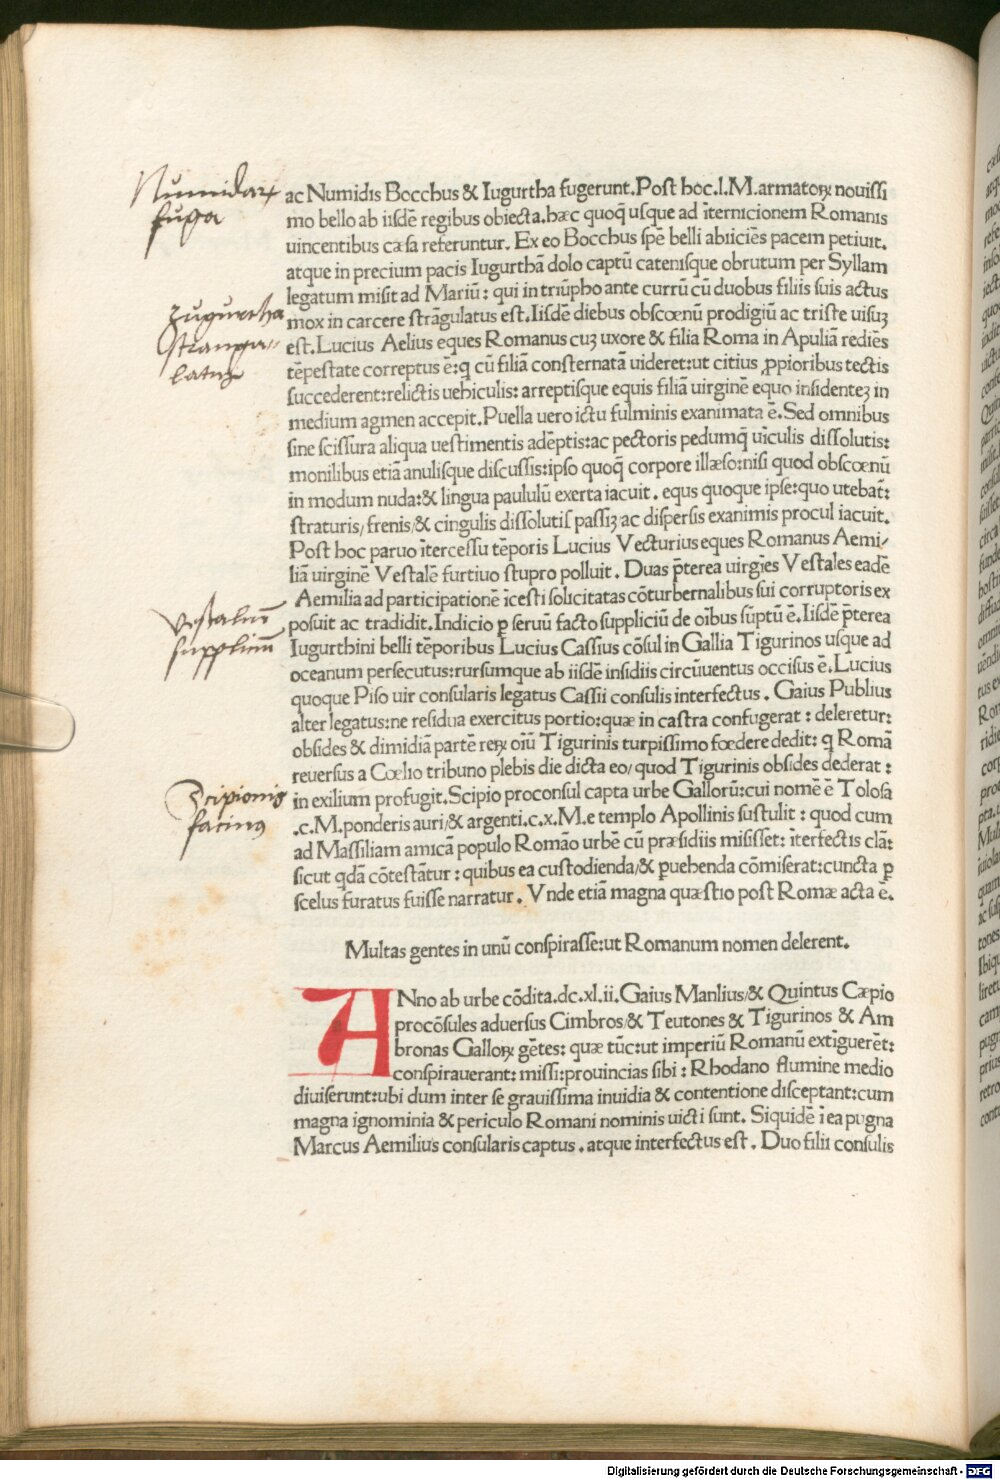 Numidarꝝ
fuga
ac Numidis Bocchus & Iugurtha fugerunt. Post hoc .l.M. armatoꝝ nouissi
mo bello ab iisdē regibus obiecta. hæc quoq̄ usque ad īternicionem Romanis
uincentibus cæsa referuntur. Ex eo Bocchus spē belli abiiciēs pacem petiuit.
atque in precium pacis Iugurthā dolo captū catenisque obrutum per Syllam
legatum misit ad Mariū: qui in triūpho ante currū cū duobus filiis suis actus
Iugurtha
strangu-
latus
mox in carcere strāgulatus est. Iisdē diebus obscœnū prodigiū ac triste uisuꝫ
est. Lucius Aelius eques Romanus cuꝫ uxore & filia Roma in Apuliā rediēs
tēpestate correptus ē: q cū filiā consternatā uideret: ut citius ꝓpioribus tectis
succederent: relictis uehiculis: arreptisque equis filiā uirginē equo insidenteꝫ in
medium agmen accepit. Puella uero ictu fulminis exanimata ē. Sed omnibus
sine scissura aliqua uestimentis adēptis: ac pectoris pedumq̄ uīculis dissolutis:
monilibus etiā anulisque discussis: ipso quoq̄ corpore illæso: nisi quod obscœnū
in modum nuda: & lingua paululū exerta iacuit. equs quoque ipse: quo utebat̄:
straturis/ frenis/ & cingulis dissolutis passiꝫ ac dispersis exanimis procul iacuit.
Post hoc paruo ītercessu tēporis Lucius Vecturius eques Romanus Aemi/
liā uirginē Vestalē furtiuo stupro polluit. Duas p̄terea uirgīes Vestales eadē
Aemilia ad participationē īcesti solicitatas cōturbernalibus sui corruptoris ex
Vestaliū
suppliciū
posuit ac tradidit. Indicio ꝑ seruū facto suppliciū de oībus sūptū ē. Iisdē p̄terea
Iugurthini belli tēporibus Lucius Cassius cōsul in Gallia Tigurinos usque ad
oceanum persecutus: rursumque ab iisdē insidiis circūuentus occisus ē. Lucius
quoque Piso uir consularis legatus Cassii consulis interfectus. Gaius Publius
alter legatus: ne residua exercitus portio: quæ in castra confugerat: deleretur:
obsides & dimidiā partē reꝝ oīū Tigurinis turpissimo fœdere dedit: q Romā
reuersus a Cœlio tribuno plebis die dicta eo/ quod Tigurinis obsides dederat:
Scipionis
facinus
in exilium profugit. Scipio proconsul capta urbe Gallorū: cui nomē ē Tolosa
.c.M. ponderis auri/ & argenti .c.x.M. e templo Apollinis sustulit: quod cum
ad Massiliam amicā populo Romāo urbē cū præsidiis misisset: īterfectis clā:
sicut qdā cōtestātur: quibus ea custodienda/ & ꝑuehenda cōmiserat: cuncta ꝑ
scelus furatus fuisse narratur. Vnde etiā magna quæstio post Romæ acta ē.
Multas gentes in unū conspirasse: ut Romanum nomen delerent.
ANno ab urbe cōdita .dc.xl.ii. Gaius Manlius/ & Quintus Cæpio
procōsules aduersus Cimbros/ & Teutones & Tigurinos & Am
bronas Galloꝝ gētes: quæ tūc: ut imperiū Romanū extīguerēt:
conspirauerant: missi: prouincias sibi: Rhodano flumine medio
diuiserunt: ubi dum inter se grauissima inuidia & contentione disceptant: cum
magna ignominia & periculo Romani nominis uicti sunt. Siquidē ī ea pugna
Marcus Aemilius consularis captus. atque interfectus est. Duo filii consulis
Digitalisierung gefördert durch die Deutsche Forschungsgemeinschaft - DFG